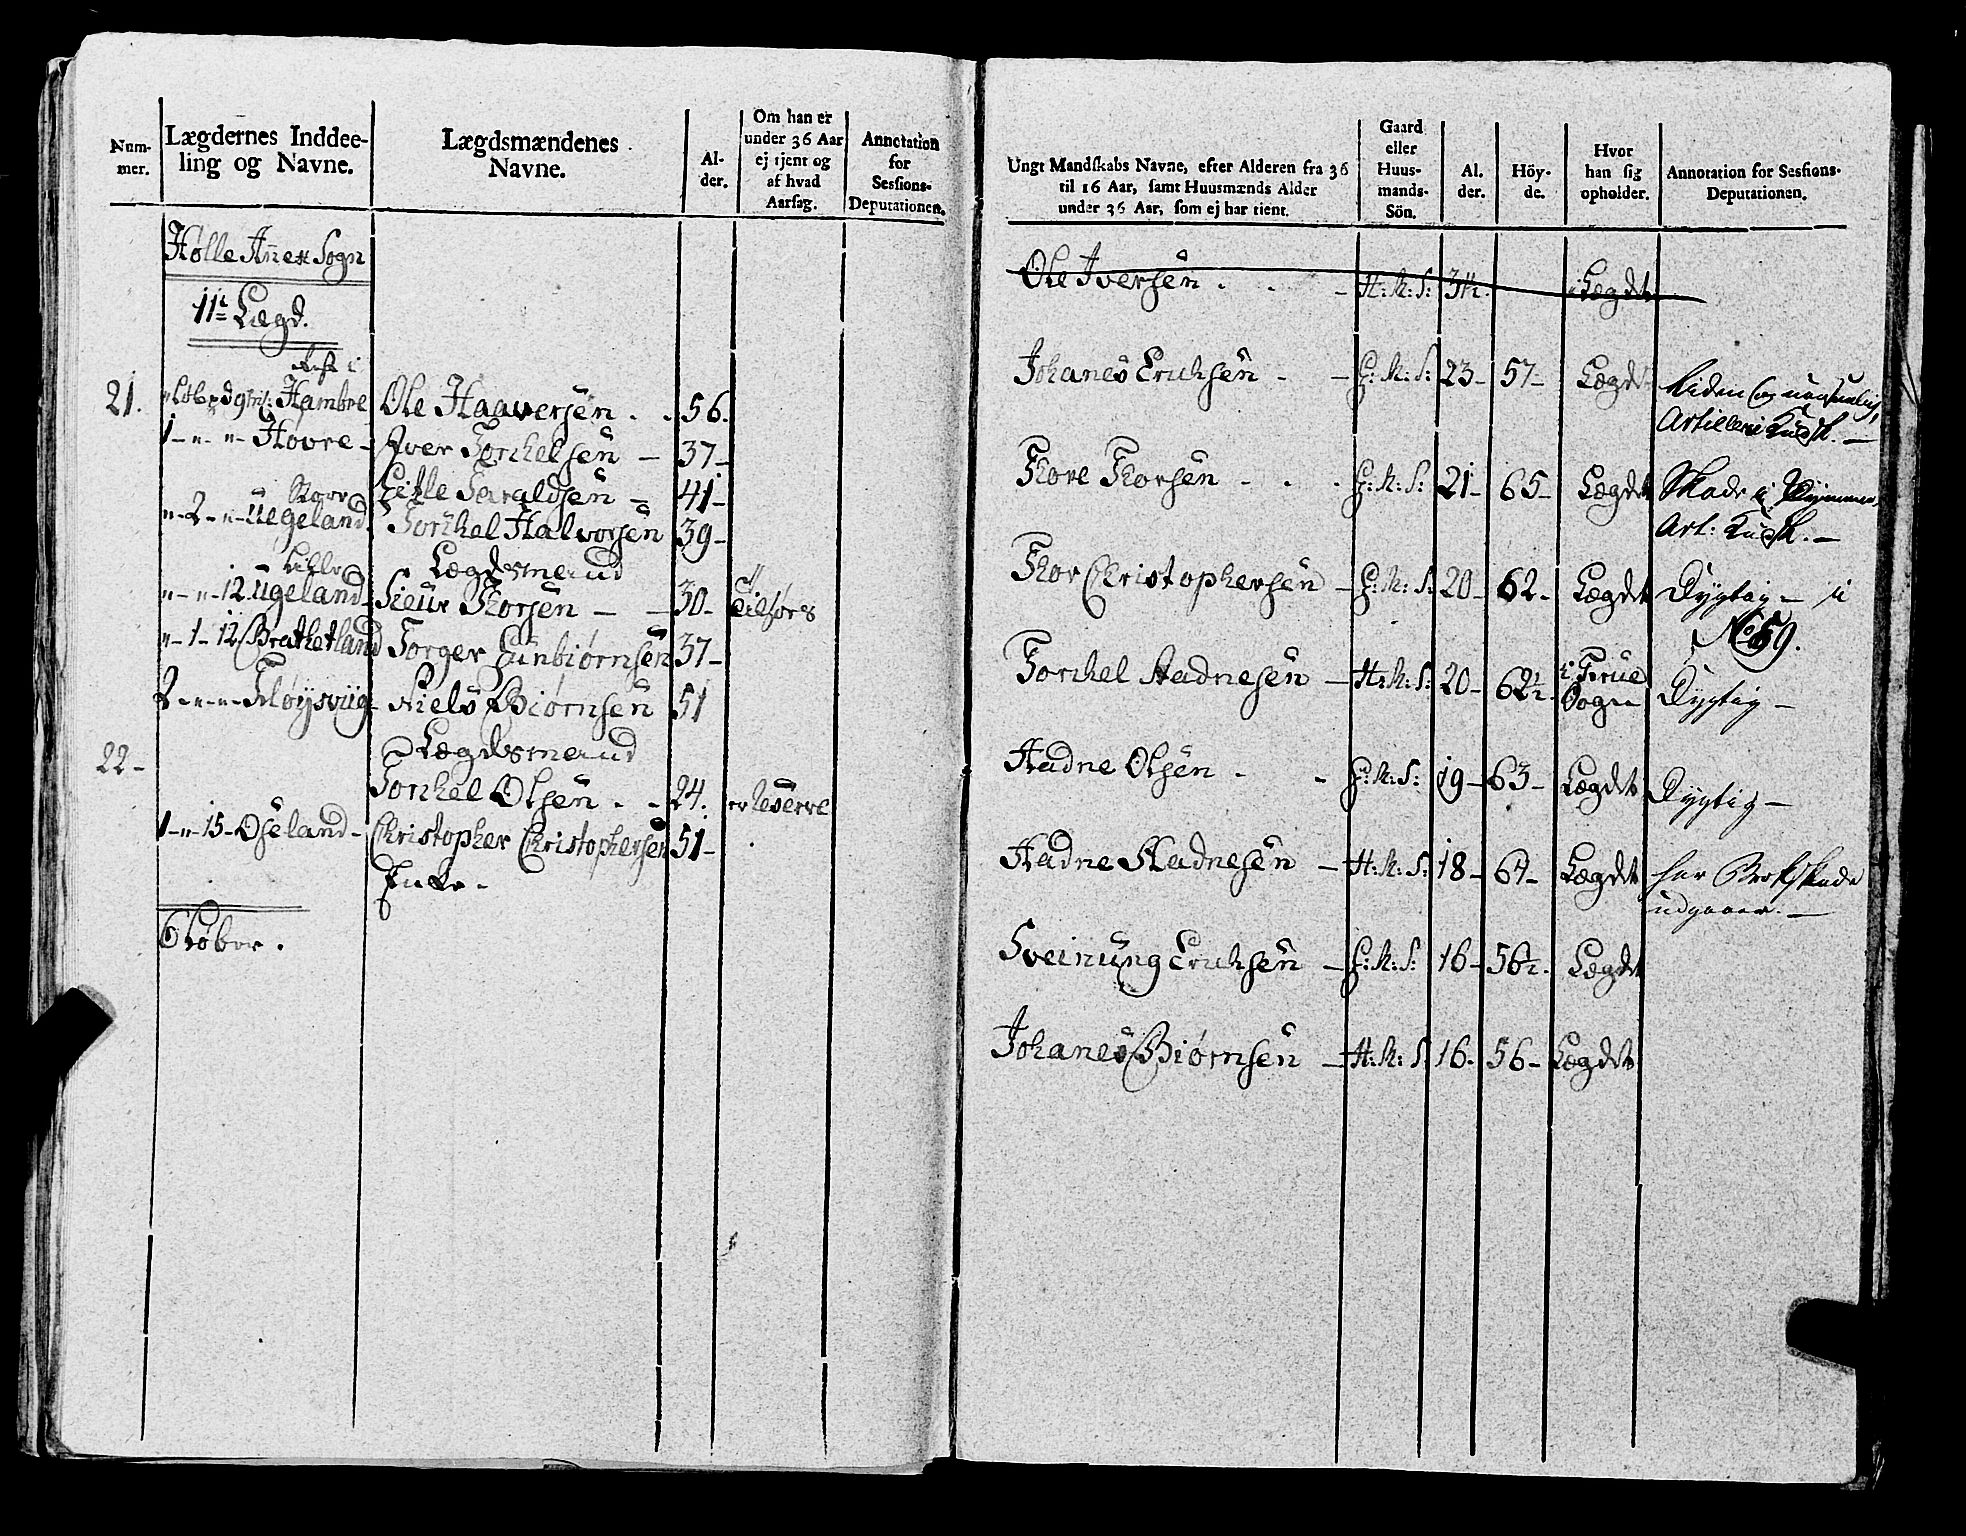 Num-
mer.
Lægdernes Inddee-
ling og Navne.
Lægdsmændenes
Navne.
Al-
der.
Om han er
under 36 Aar
ej tjent og
af hvad
Aarsag.
Annotation
for
Sessions-
Deputationen.
Hølle Añex Sogn
11te Lægd.
Rest i
21. Hambre Ole Haaversen . . 56.
1 - " - " - Hovre - Iver Torchelsen - 37 -
Taraldsen - 41 -
Store
" - 2 - " - Uegeland Torchel Halvorsen 39 -
Lægdsmand
Lille
" - " - 12 Ugeland - Sieur Thorsen - - 30 -
" - 1 - 12 Torger Gunbiørnsen 37 -
2 - " - " - Fløysviig - Niels Biørnsen 51
Lægdsmand
22 - Torchel Olsen . . 24. er Reserve
1 - " - 15 - Øseland - Christopher Christophersen 51 -
Enke.
Ungt Mandskabs Navne, efter Alderen fra 36
til 16 Aar, samt Huusmænds Alder
under 36 Aar, som ej har tient.
Gaard
eller
Huus-
mands-
Sön.
Al.
der.
Höy-
de.
Hvor
han sig
opholder.
Annotation for Sessions-
Deputationen.
Ole Iversen . . - H: M: S: Lægdt
Johanes Erichsen . - G: M: S: 23 - 57 - Lægdt liden og
Artillerie Kudsk. -
Thore Thorsen - . . G: M: S: 21 - 65 - Lægdt Skade i
Art: Kudsk. -
Thor Christophersen - G: M: S: 20 - 62 - Lægdt Dygtig - i
No 59.
Torchel Aadnesen - H: M: S: 20 - 62½ - i Finne
Sogn Dygtig -
Aadne Olsen . - G: M: S: 19 - 63 - Lægdt Dygtig -
Aadne Aadnesen - H: M: S: 18 - 64 - Lægdt har Brokskade
udgaaer. -
Sveinung Erichsen - G: M: S: 16 - 56½. Lægdt
Johanes Biørnsen - H: M: S. 16 - 56 - Lægdt